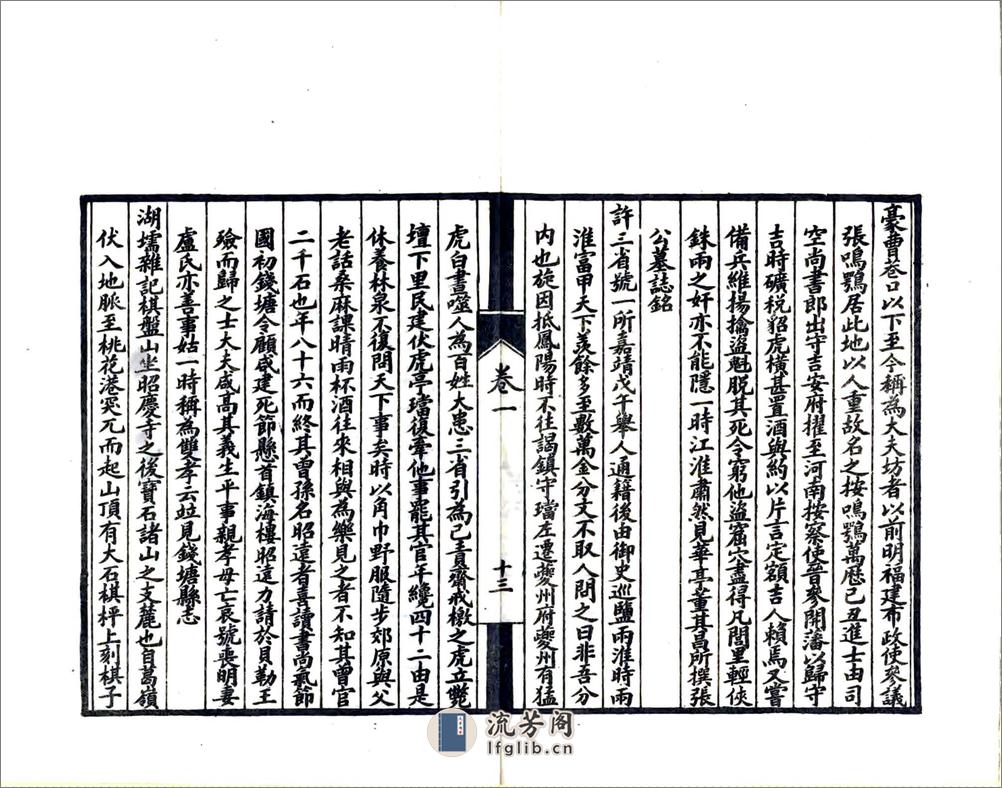 豪曹巷口以下至今稱為大夫坊者以前明福建布政使參議
張鳴鶚居此地以人重故名之按鳴鶚萬歷己丑進士由司
空尚書郎出守吉安府擢至河南按察使晉參開藩以歸守
吉時礦稅貂虎橫甚置酒與約以片言定額吉人賴焉又嘗
備兵維揚擒盜魁脫其死令窮他盜窟穴盡得凡閭里輕俠
銖兩之奸亦不能隱一時江淮肅然見華亭董其昌所撰張
公墓誌銘
許三省號一所嘉靖戊午舉人通籍後由御史巡鹽兩淮時兩
淮富甲天下羨餘多至數萬金分文不取人問之曰非吾分
內也旋因抵鳳陽時不往謁鎮守璫左遷夔州府夔州有猛
卷一
十三
虎白晝噬人為百姓大患三省引為己責齋戒檄之虎立斃
壇下里民建伏虎亭璫復牽他事罷其官年纔四十二由是
休養林泉不復問天下事矣時以角巾野服隨步郊原與父
老話桑麻課晴雨杯酒往來相與為樂見之者不知其曾官
二千石也年八十六而終其曾孫名昭遠者喜讀書尚氣節
國初錢塘令顧咸建死節懸首鎮海樓昭遠力請於貝勒王
殮而歸之士大夫咸高其義生平事親孝母亡哀號喪明妻
盧氏亦善事姑一時稱為雙孝云竝見錢塘縣志
湖壖雜記棋盤山坐昭慶寺之後寶石諸山之支麓也自葛嶺
伏入地脈至桃花港突兀而起山頂有大石棋枰上刻棋子
流芳阁
lfglib.cn